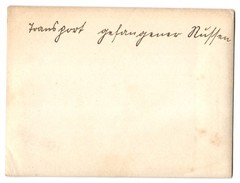 Transport gefangener Russen